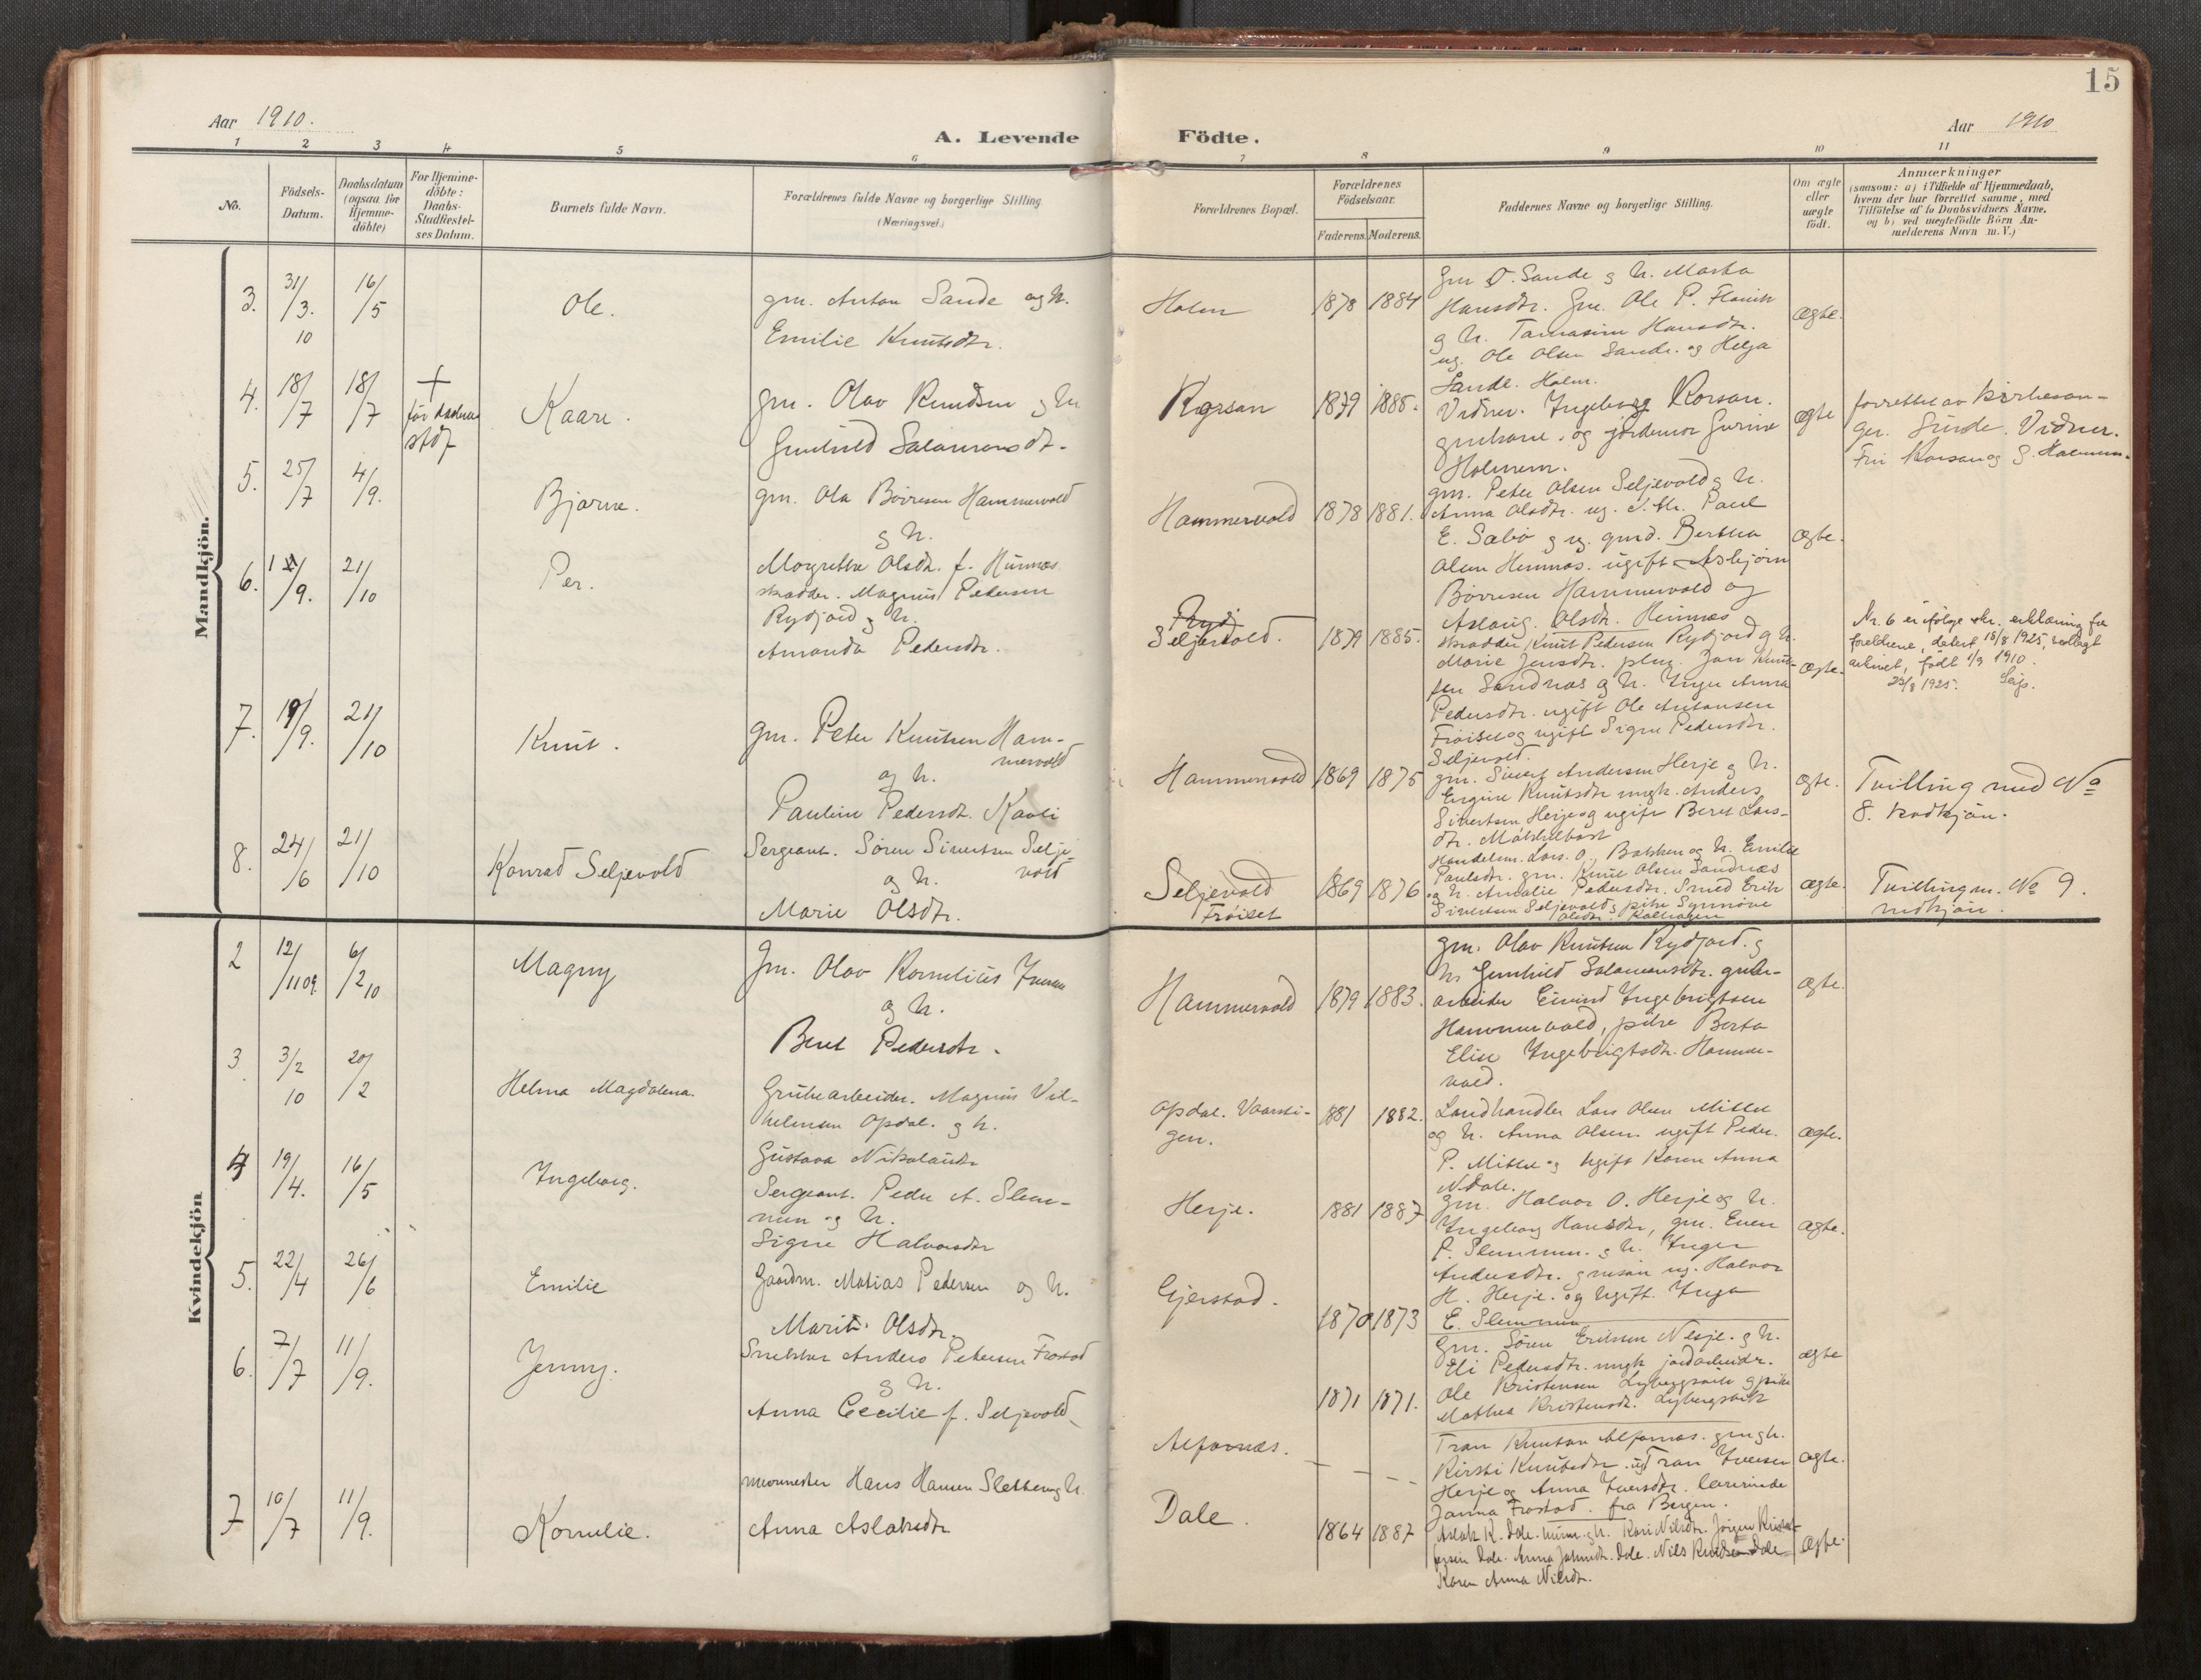 15
Aar 1910.
A. Levende Födte.
Aar 1910
1 2 3 4 5 6 7 8 9 10 11
No.
Födsels-
Datum.
Daabsdatum
(ogsaa for
Hjemme-
döbte)
For Hjemme-
döbte:
Daabs-
Stadfæstel-
ses Datum.
Barnets fulde Navn.
Forældrenes fulde Navne og borgerlige Stilling.
(Næringsvei.)
Forældrenes Bopæl.
Forældrenes
Födselsaar.
Faderens. Moderens.
Faddernes Navne og borgerlige Stilling.
Om ægte
eller
uægte
födt.
Anmærkninger
(saasom: a) i Tilfælde af Hjemmedaab,
hvem der har forrettet samme, med
Tilföielse af to Daabsvidners Navne,
og b) ved uegtefödte Börn An-
melderens Navn m. V.)
Mandkjön.
3. 31/3. 10 16/5 Ole.
gm. Anton Sande og h.
Emilie Knutsdtr.
Holm 1878 1884
Gm O. Sande g h. Marta
Hansdtr. Gm. Ole P.
g h. Hansdtr.
ug. Ole Olsen Sande. og Helga
Sande. Holm.
ægte.
4. 18/7 18/7 + Kaare.
gm. Olav Knudsen g h
Gunhild Salamonsdt.
Korsan 1879 1885.
Vidner. Ingeborg Korsan.
gmkone. og jordemor Gurine
Holmem.
ægte
forrettet av kirkesan-
ger. Sunde. Vidner.
Fru Korsan og G. Holmem.
5. 25/7 4/9. Bjarne.
gm. Ola Børresen Hammervold
g h.
Margrethe Olsdtr. f. Hunnes
Hammervold 1878 1881.
gm. Peter Olsen Seljevold g h.
Anna Olsdtr. ug. Paul
E. Sæbø g ug. gmd. Bertha
Olsen Hunnes. ugift Asbjørn
Børresen Hammervold og
Aslaug. Olsdtr. Hunnes
ægte.
6. 1/9. 21/10 Per.
skrædder. Magnus Pedersen
Rydjord g h.
Amanda Pedersdtr.
Seljevold. 1879 1885.
skrædder Knut Pedersen Rydjord g h.
Marie Jensdtr. Jan Knut-
sen Sandnæs g h. Inger Anna
Pedersdtr. ugift Ole Antonsen
Frøiset og ugift Signe Pedersdtr.
Seljevold.
ægte.
Nr. 6 er ifølge skr. erklæring fra
foreldrene, datert 18/8 1925, vedlagt
arkivet, født 1/9 1910.
25/8 1925.
7. 19/9. 21/10 Knut.
gm. Peter Knutsen Ham-
mervold
og h.
Pauline Pedersdtr. Kavli
Hammervold 1869 1875
gm. Sivert Andersen Herje g h.
Knutsdtr ungk. Anders
Sivertsen Herje og ugift Beret Lars-
dtr.
ægte.
Tvilling med No
8. kvdkjön.
8. 24/6 21/10 Konrad Seljevold
Sergeant. Søren Sivertsen Selje-
vold
og h.
Marie Olsdtr.
Seljevold
Frøiset
1869 1876
Handelsm. Lars. O. Bakken og h. Emilie
Paulsdtr. gm. Knut Olsen Sandnæs
og h. Amalie Pedersdtr. Smed Erik
Sivertsen Seljevold g pike Synnøve
Olsdtr.
ægte.
Tvilling m. No 9.
Kvindekjön
2 12/11 09. 6/2 10 Magny
Gm. Olav Kornelius Iversen
og h.
Beret Pedersdtr.
Hammervold 1879 1883.
gm. Olav Knutsen Rydjord. g
h. Gunhild Salamonsdtr. grube-
arbeider Eivind Ingebrigtsen
Hammervold, pike Berta
Elise Ingebrigtsdtr. Hammer-
vold.
ægte.
3 3/2 10 20/2 Helma Magdalena.
Grubearbeider. Magnus Vil-
helmsen Opdal. g h.
Gustava Nikolaisdtr
Opdal. 1881 1882.
Landhandler Lars Olsen Mittet
og h. Anna Olsen. ugift Peder.
P. Mittet og ugift Karen Anna
N. Dale.
ægte.
4 19/4. 16/5 Ingeborg.
Sergeant. Peder A. Slem-
men og h.
Signe Halvorsdtr
Herje. 1881 1887
gm. Halvor O. Herje og h.
Ingeborg Hansdtr, gm. Even
P. Slemmen. g h. Inger
Andersdtr. gmsøn ug. Halvor
H. Herje. og ugift. Inga
E. Slemmen
ægte.
5. 22/4 26/6 Emilie
Gaardm. Matias Pedersen og h.
Marit Olsdtr.
Gjerstad. 1870 1873
Gm. Søren Eriksen Nesje. g h.
Eli Pedersdtr. ungk jordarbeider.
Ole Kristensen Lybergsvik g pike
Mathea Kristensdtr. Lybergsvik
ægte
6. 7/7 11/9. Jenny.
Snekker Anders Petersen Frostad
g h.
Anna Cecilie f. Seljevold
Alfarnæs. 1871 1871.
Tran Knutsen Alfarnæs.
Kirsti Knutsdtr. Tran Iversen
Herje og Anna Iversdtr. lærerinde
Janna Frostad. fra Bergen.
ægte.
7 10/7 11/9. Kornelie.
Hans Hansen Sletten og h.
Anna Aslaksdtr
Dale. 1864 1887
Aslak K. Dale. g h. Kari Nilsdtr. Jørgen Kristof-
fersen Dale. Dale. Nils Knudsen Dale
Karen Anna Nilsdtr.
ægte.